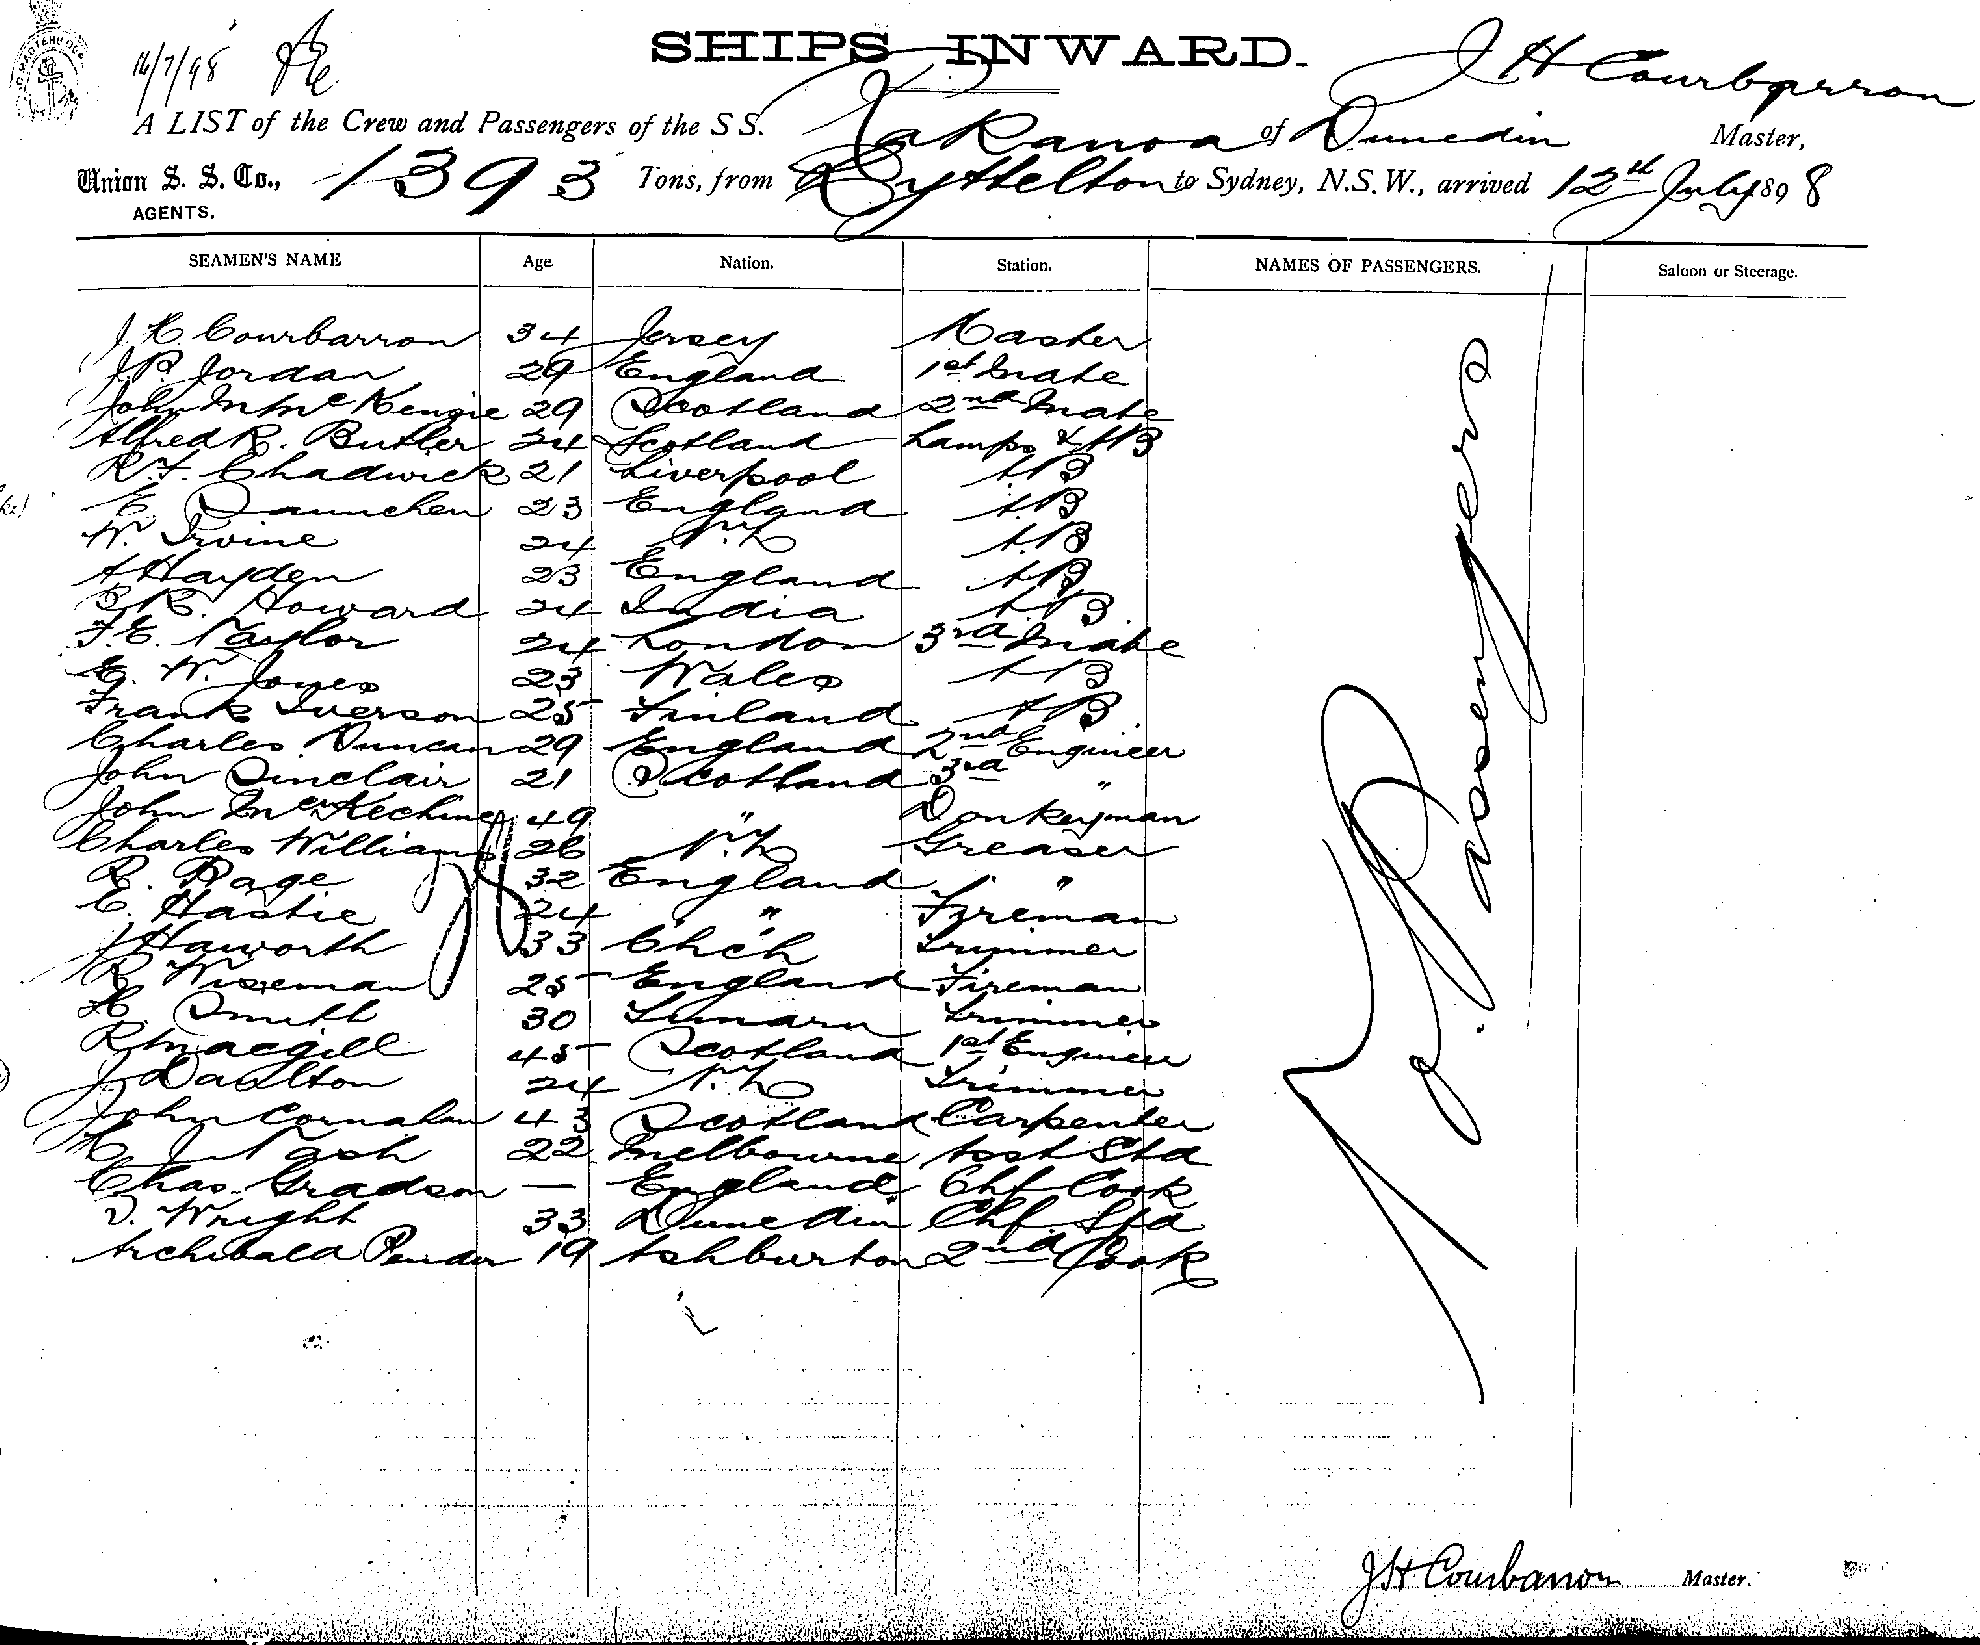 16/7/98
SHIPS INWARD.
J H Courbarron
A LIST of the Crew and Passengers of the S S. Takanoa of Dunedin Master,
Union S. S. Co., 1393 Tons, from Lyttelton to Sydney, N.S.W., arrived 12th July 1898
AGENTS.
SEAMEN'S NAME Age Nation. Station. NAMES OF PASSENGERS. Saloon or Steerage.
J. H Courbarron 34 Jersey Master
J. P. Jordan 29 England 1st Mate
John M McKenzie 29 Scotland 2nd Mate
Alfred R. Butler 24 Scotland Lamps & AB
R. F. Chadwick 21 Liverpool AB
E. Daunchen 23 England A.B
W. Irvine 24 N.Z A.B
A Hayden 23 England AB
B R. Howard 24 India AB
F. E. Naylor 24 London 3rd Mate
E. W. Jones 23 Wales AB
Frank Iverson 25 Finland AB
Charles Duncan 29 England 2nd Engineer
John Sinclair 21 Scotland 3rd "
John McKechine 49 " Donkeyman
Charles Williams 26 N.Z Greaser
R. Page 32 England "
E. Hastie 24 " Fireman
J Haworth 33 Chch Trimmer
R Wiseman 25 England Fireman
H. Smith 30 Timaru Trimmer
R Macgill 45 Scotland 1st Engineer
J. Daulton 24 N.Z Trimmer
John Cornahan 43 Scotland Carpenter
H J Nash 22 Melbourne Asst Std
Chas. Gradson — England Chf Cook
D. Wright 33 Dunedin Chf. Std
Archibald Pender 19 Ashburton 2nd Cook
No. Passengers
JH Courbarron Master.